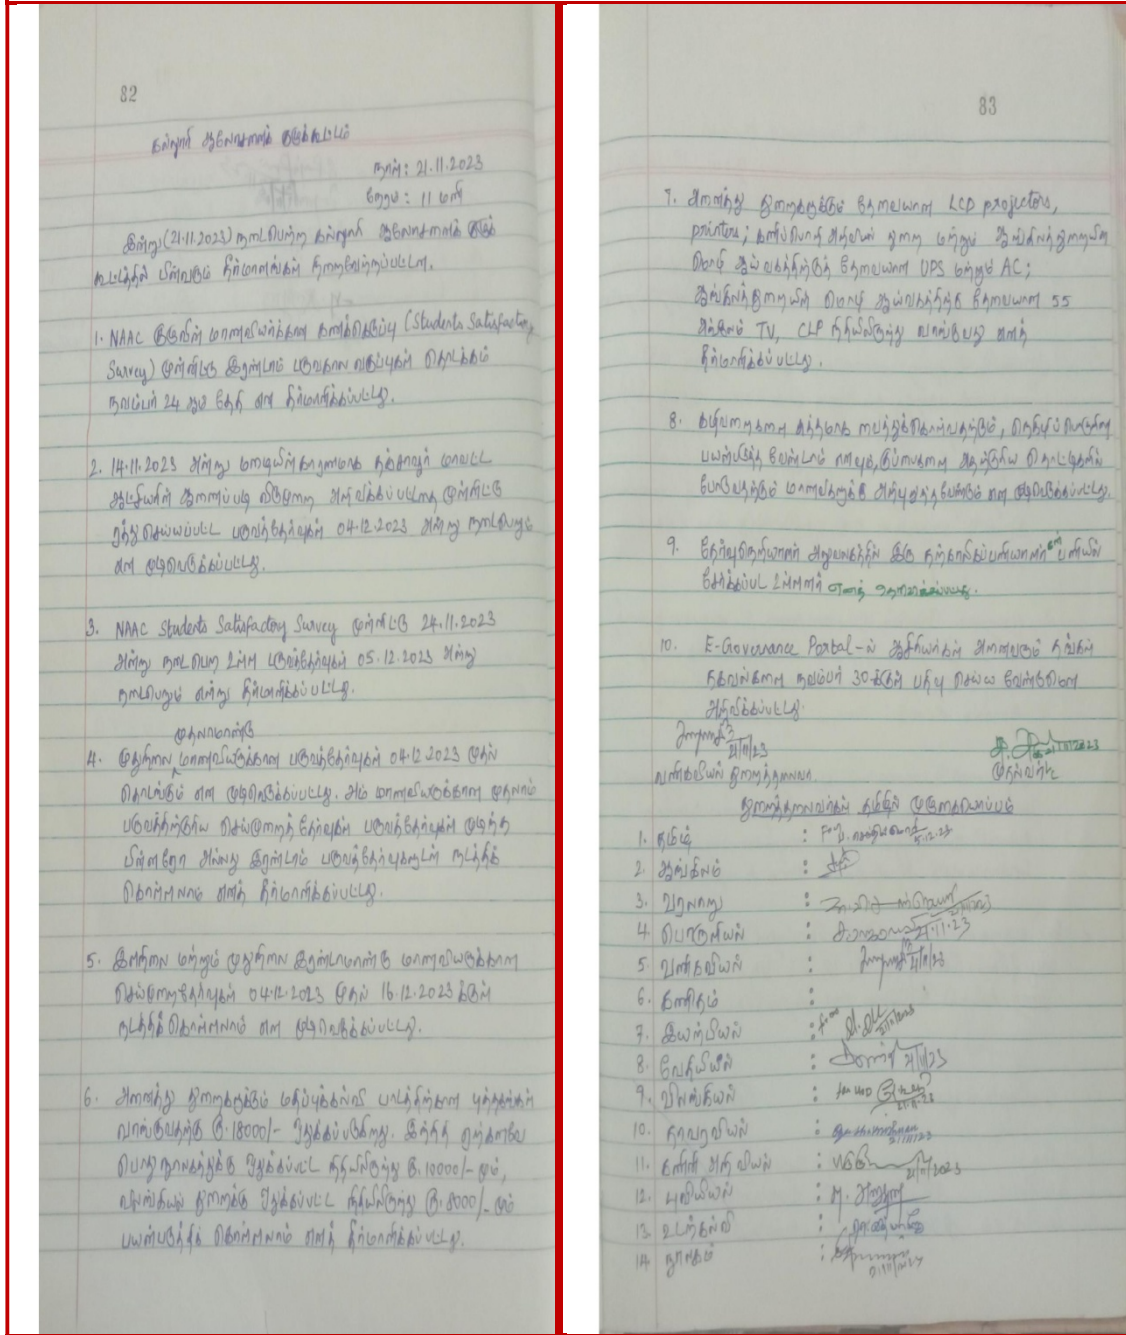 82
கல்லூரி ஆலோசனைக் குழுக்கூட்டம்
நாள் : 21.11.2023
நேரம் : 11 மணி
இன்று (21.11.2023) நடைபெற்ற கல்லூரி ஆலோசனைக் குழுக்
கூட்டத்தில் பின்வரும் தீர்மானங்கள் நிறைவேற்றப்பட்டன.
1. NAAC குழுவின் மாணவியர்க்கான கணக்கெடுப்பு (Students Satisfactory
Survey) முன்னிட்டு இரண்டாம் பருவகால வகுப்புகள் தொடக்கம்
நவம்பர் 24 ஆம் தேதி என தீர்மானிக்கப்பட்டது.
2. 14.11.2023 அன்று மழையின் காரணமாக தஞ்சாவூர் மாவட்ட
ஆட்சியரின் ஆணைப்படி விடுமுறை அறிவிக்கப்பட்டதை முன்னிட்டு
ரத்து செய்யப்பட்ட பருவத்தேர்வுகள் 04.12.2023 அன்று நடைபெறும்
என முடிவெடுக்கப்பட்டது.
3. NAAC Students Satisfactory Survey முன்னிட்டு 24.11.2023
அன்று நடைபெற உள்ள பருவத்தேர்வுகள் 05.12.2023 அன்று
நடைபெறும் என்று தீர்மானிக்கப்பட்டது.
முதலாமாண்டு
4. முதுநிலை மாணவியருக்கான பருவத்தேர்வுகள் 04.12.2023 முதல்
தொடங்கும் என முடிவெடுக்கப்பட்டது. அம் மாணவியருக்கான முதலாம்
பருவத்திற்குரிய செய்முறைத் தேர்வுகள் பருவத்தேர்வுகள் முடிந்த
பின்னரோ அல்லது இரண்டாம் பருவத்தேர்வுகளுடன் நடத்திக்
கொள்ளலாம் எனத் தீர்மானிக்கப்பட்டது.
5. இளநிலை மற்றும் முதுநிலை இரண்டாமாண்டு மாணவியருக்கான
செய்முறைதேர்வுகள் 04.12.2023 முதல் 16.12.2023 க்குள்
நடத்திக் கொள்ளலாம் என முடிவெடுக்கப்பட்டது.
6. அனைத்து துறைகளுக்கும் மதிப்புக்கல்வி பாடத்திற்கான புத்தகங்கள்
வாங்குவதற்கு ரூ.18000/- ஒதுக்கப்படுகிறது. இந்நிதி ஏற்கனவே
பொது நூலகத்துக்கு ஒதுக்கப்பட்ட நிதியிலிருந்து ரூ.10000/- மும்,
விலங்கியல் துறைக்கு ஒதுக்கப்பட்ட நிதியிலிருந்து ரூ.8000/- மும்
பயன்படுத்திக் கொள்ளலாம் எனத் தீர்மானிக்கப்பட்டது.
83
7. அனைத்து துறைகளுக்கும் தேவையான LCD projectors,
printers; கணிப்பொறி அறிவியல் துறை மற்றும் ஆங்கிலத்துறையின்
மொழி ஆய்வகத்திற்குத் தேவையான UPS மற்றும் AC;
ஆங்கிலத்துறையின் மொழி ஆய்வகத்திற்கு தேவையான 55
அங்குலம் TV, CLP நிதியிலிருந்து வாங்குவது எனத்
தீர்மானிக்கப்பட்டது.
8. கழிவறைகளை சுத்தமாக வைத்துக்கொள்வதற்கும், நெகிழிப் பொருளை
பயன்படுத்த வேண்டாம் எனவும், குப்பைகளை அதற்குரிய தொட்டிகளில்
போடுவதற்கும் மாணவிகளுக்கு அறிவுறுத்தவேண்டும் என முடிவெடுக்கப்பட்டது.
9. தேர்வுநெறியாளர் அலுவலகத்தில் இரு தற்காலிகப்பணியாளர்கள் பணியில்
சேர்க்கப்பட உள்ளனர் எனத் தெரிவிக்கப்பட்டது.
10. E-Governance Portal-ல் ஆசிரியர்கள் அனைவரும் தங்கள்
தகவல்களை நவம்பர் 30-க்குள் பதிவு செய்ய வேண்டுமென
அறிவிக்கப்பட்டது.
21/11/23
21/11/2023
வணிகவியல் துறைத்தலைவர்
முதல்வர்
துறைத்தலைவர்கள் தமிழில் முழுகையொப்பம்
1. தமிழ் :
2. ஆங்கிலம் :
3. வரலாறு :
4. பொருளியல் : 21.11.23
5. வணிகவியல் : 21/11/23
6. கணிதம் :
7. இயற்பியல் :
8. வேதியியல் : 21/11/23
9. விலங்கியல் :
10. தாவரவியல் :
11. கணினி அறிவியல் : 21/11/2023
12. புவியியல் :
13. உடற்கல்வி :
14. நூலகம் :